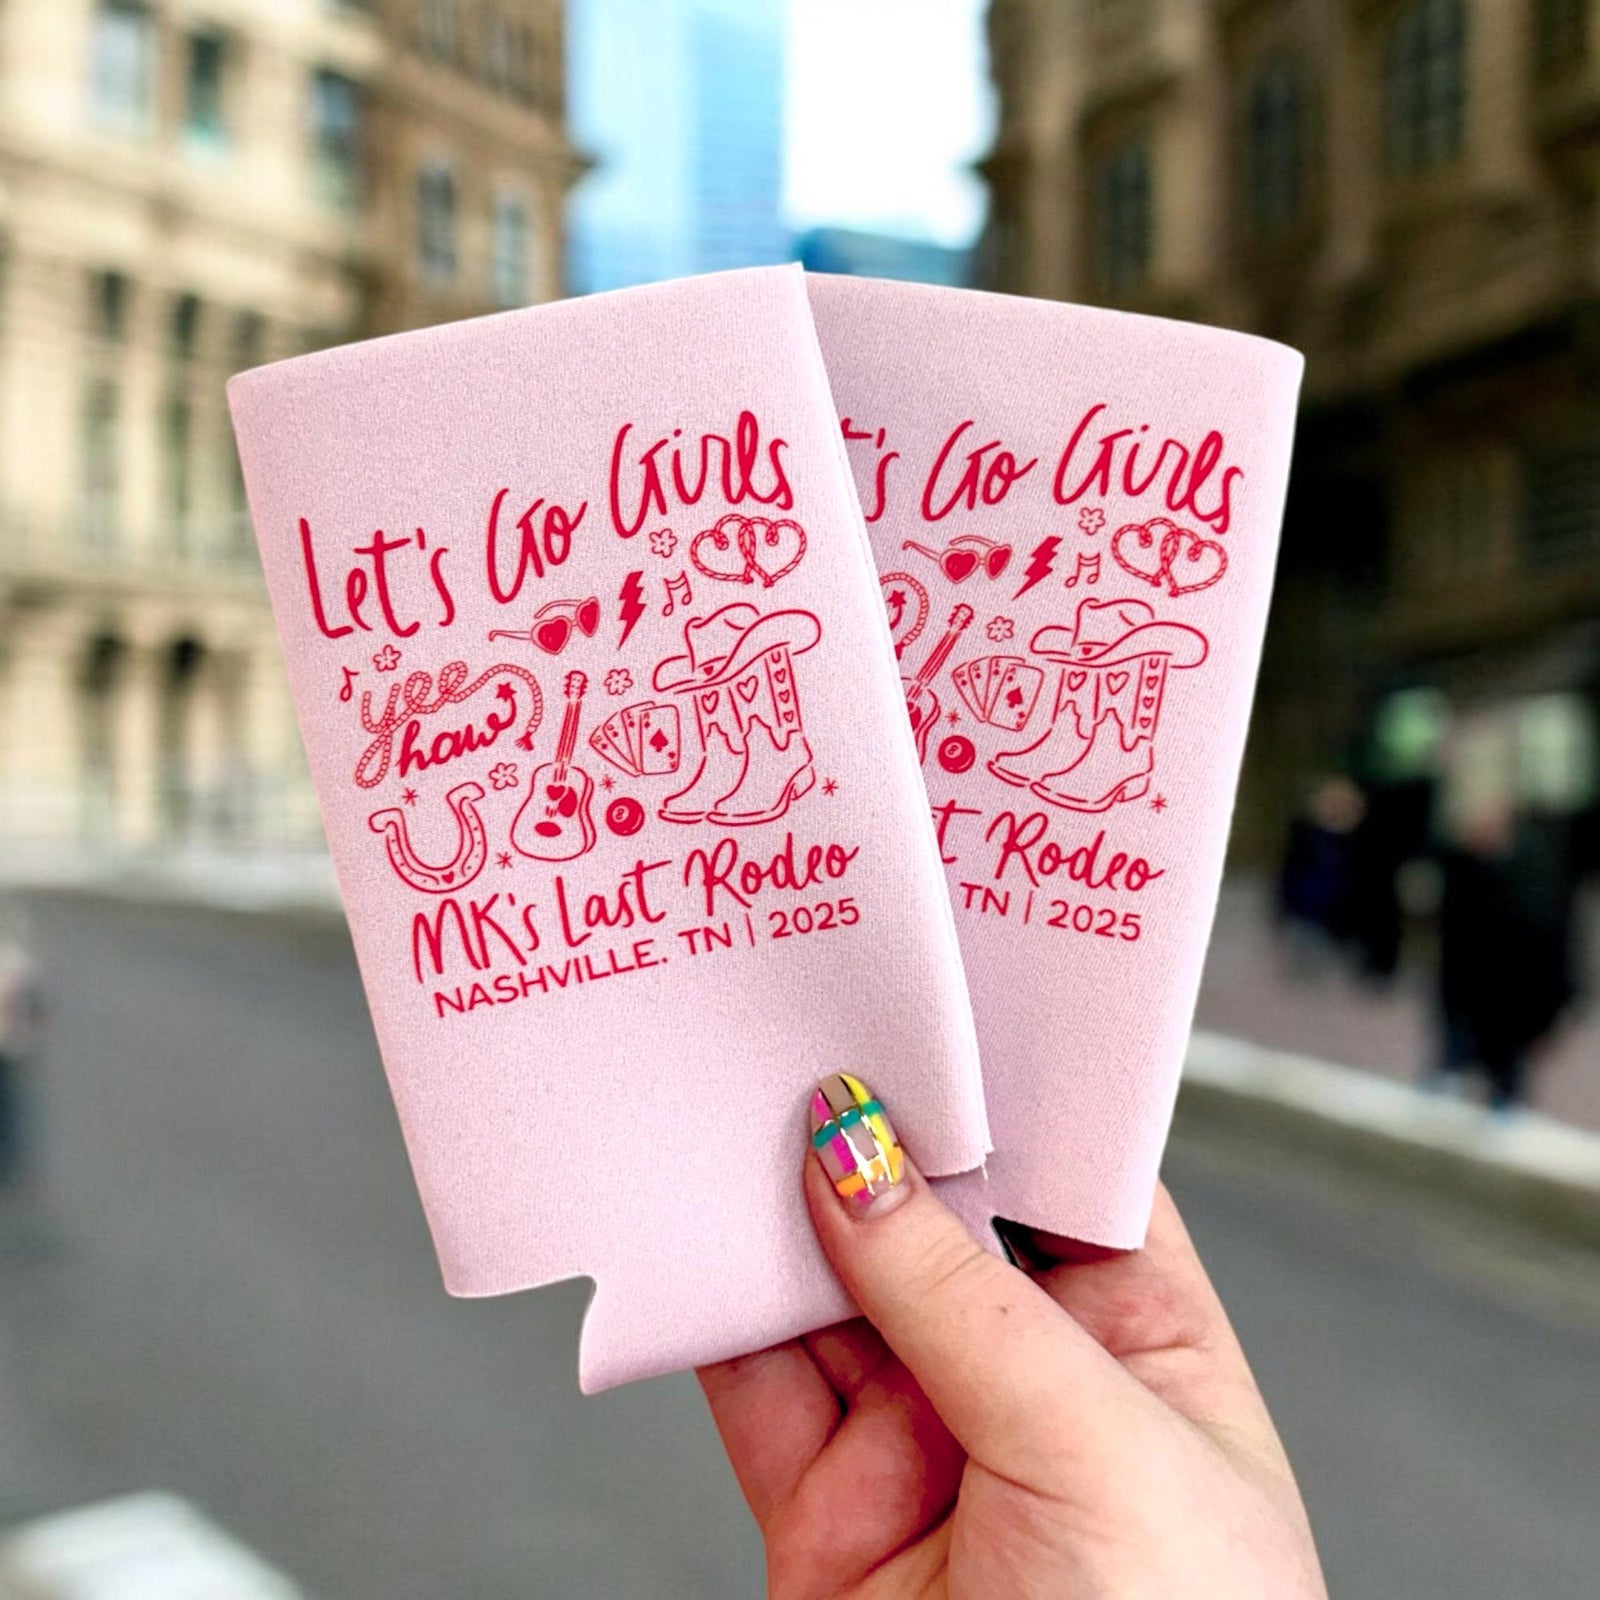 Let's Go Girls
yee
haw
8
MK's Last Rodeo
NASHVILLE. TN | 2025
's Go Girls
8
t Rodeo
TN | 2025